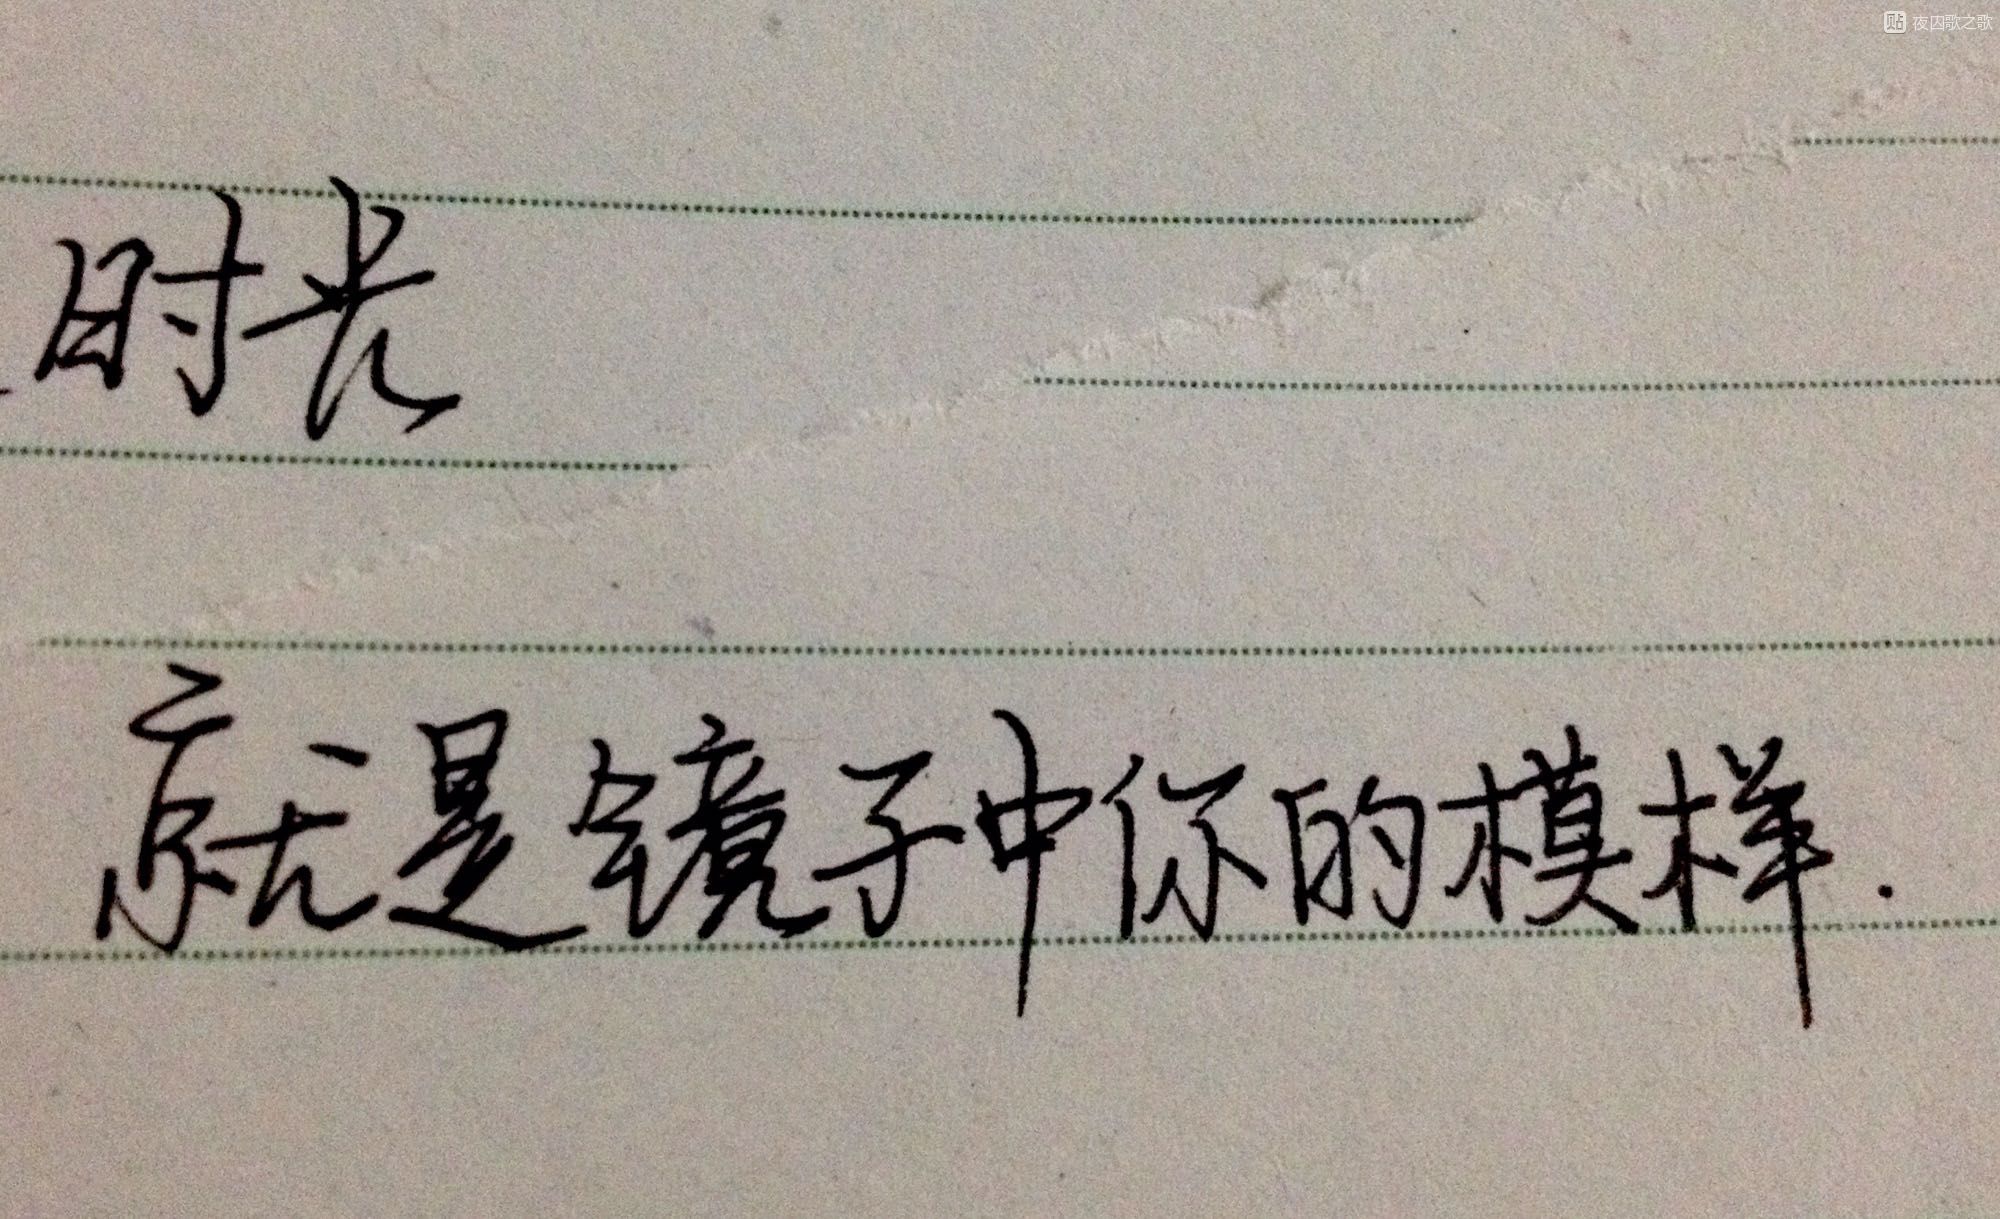 贴 夜囚歌之歌
时光
就是镜子中你的模样.